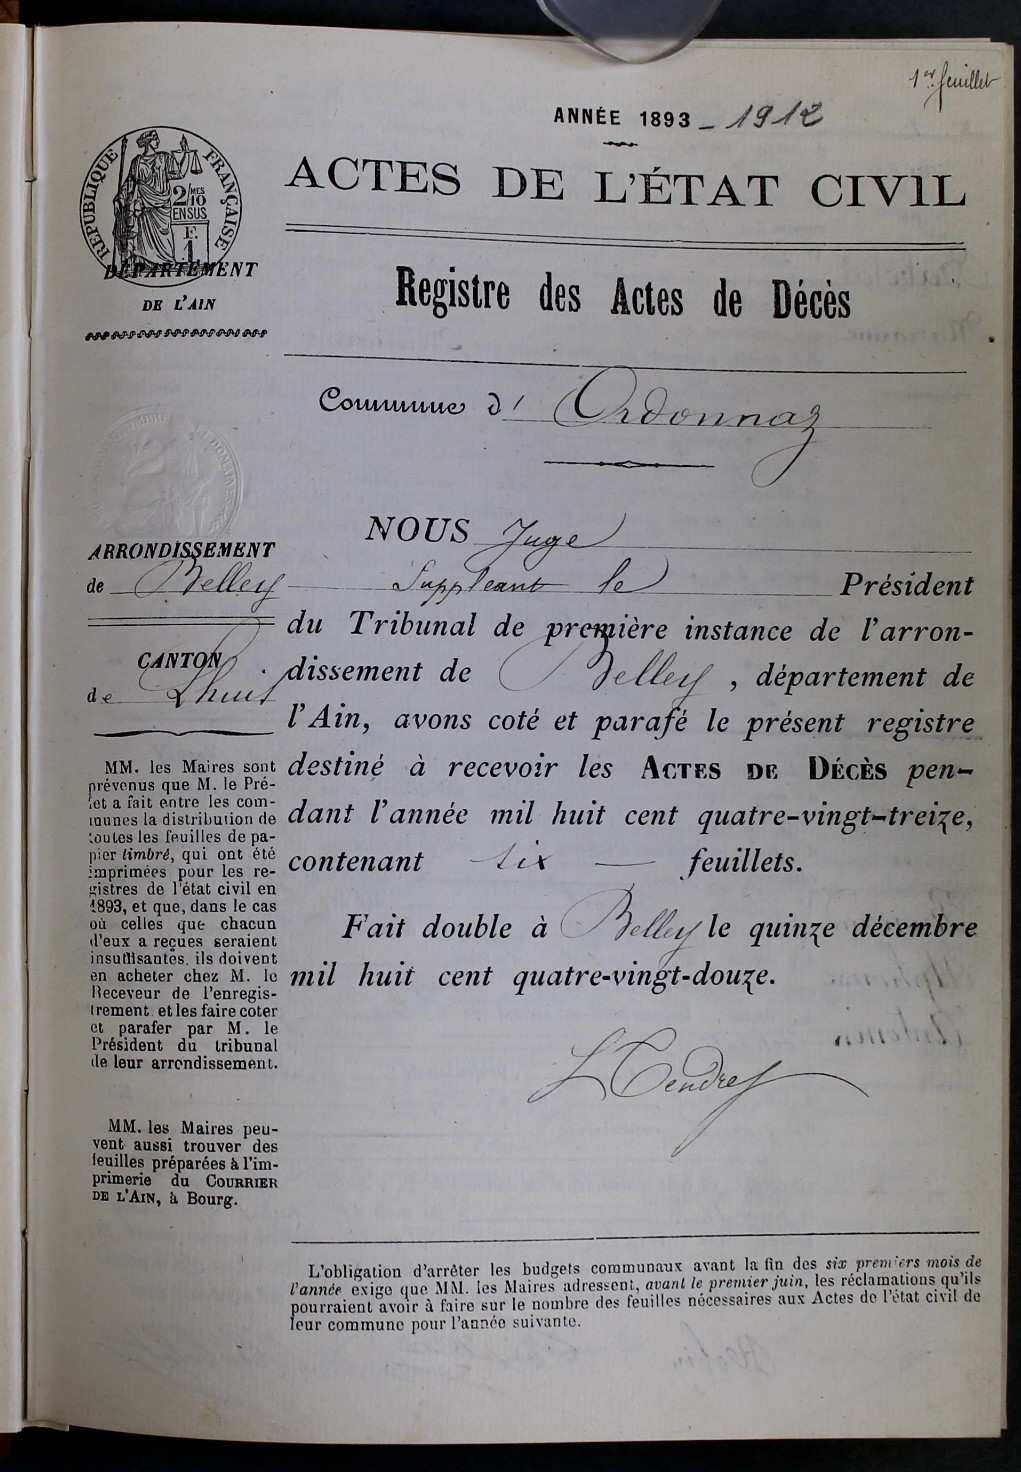 1er feuillet
ANNÉE 1893 - 1912
ACTES DE L'ÉTAT CIVIL
RÉPUBLIQUE FRANÇAISE
2/10 MES
EN SUS
F.
1
DÉPARTEMENT
DE L'AIN
Registre des Actes de Décès
Commune d' Ordonnaz
ARRONDISSEMENT
de Belley
CANTON
de Lhuis
MM. les Maires sont
prévenus que M. le Pré-
fet a fait entre les com-
munes la distribution de
toutes les feuilles de pa-
pier timbré, qui ont été
imprimées pour les re-
gistres de l'état civil en
1893, et que, dans le cas
où celles que chacun
d'eux a reçues seraient
insuffisantes, ils doivent
en acheter chez M. le
Receveur de l'enregis-
trement et les faire coter
et parafer par M. le
Président du tribunal
de leur arrondissement.
MM. les Maires peu-
vent aussi trouver des
feuilles préparées à l'im-
primerie du COURRIER
DE L'AIN, à Bourg.
NOUS Juge
Suppléant le Président
du Tribunal de première instance de l'arron-
dissement de Belley, département de
l'Ain, avons coté et parafé le présent registre
destiné à recevoir les ACTES DE DÉCÈS pen-
dant l'année mil huit cent quatre-vingt-treize,
contenant six — feuillets.
Fait double à Belley le quinze décembre
mil huit cent quatre-vingt-douze.
L'obligation d'arrêter les budgets communaux avant la fin des six premiers mois de
l'année exige que MM. les Maires adressent, avant le premier juin, les réclamations qu'ils
pourraient avoir à faire sur le nombre des feuilles nécessaires aux Actes de l'état civil de
leur commune pour l'année suivante.